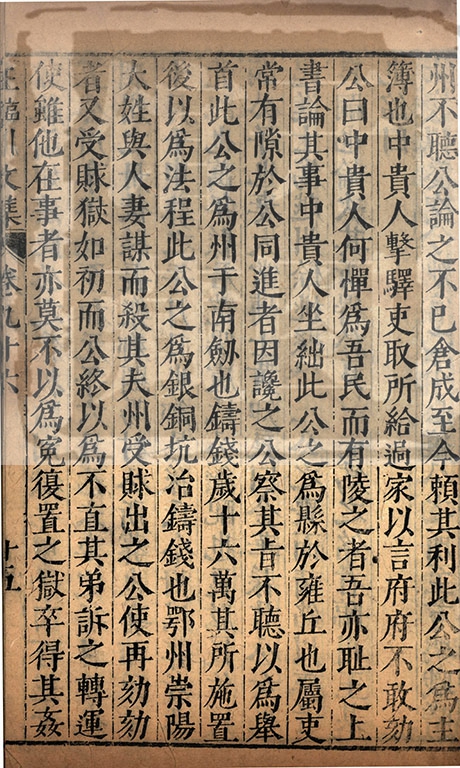 州不聽公論之不已倉成至今賴其利此公之爲主
簿也中貴人擊驛吏取所給過家以言府府不敢劾
公曰中貴人何憚爲吾民而有陵之者吾亦耻之上
書論其事中貴人坐絀此公之爲縣於雍丘也屬吏
常有隙於公同進者因讒之公察其㫖不聽以爲舉
首此公之爲州于南劔也鑄錢歲十六萬其所施置
後以爲法程此公之爲銀銅坑冶鑄錢也鄂州崇陽
大姓與人妻謀而殺其夫州受賕出之公使再劾劾
者又受賕獄如初而公終以爲不直其弟訴之轉運
使雖他在事者亦莫不以爲寃復置之獄卒得其姦
王臨川文集 卷九十六 十五